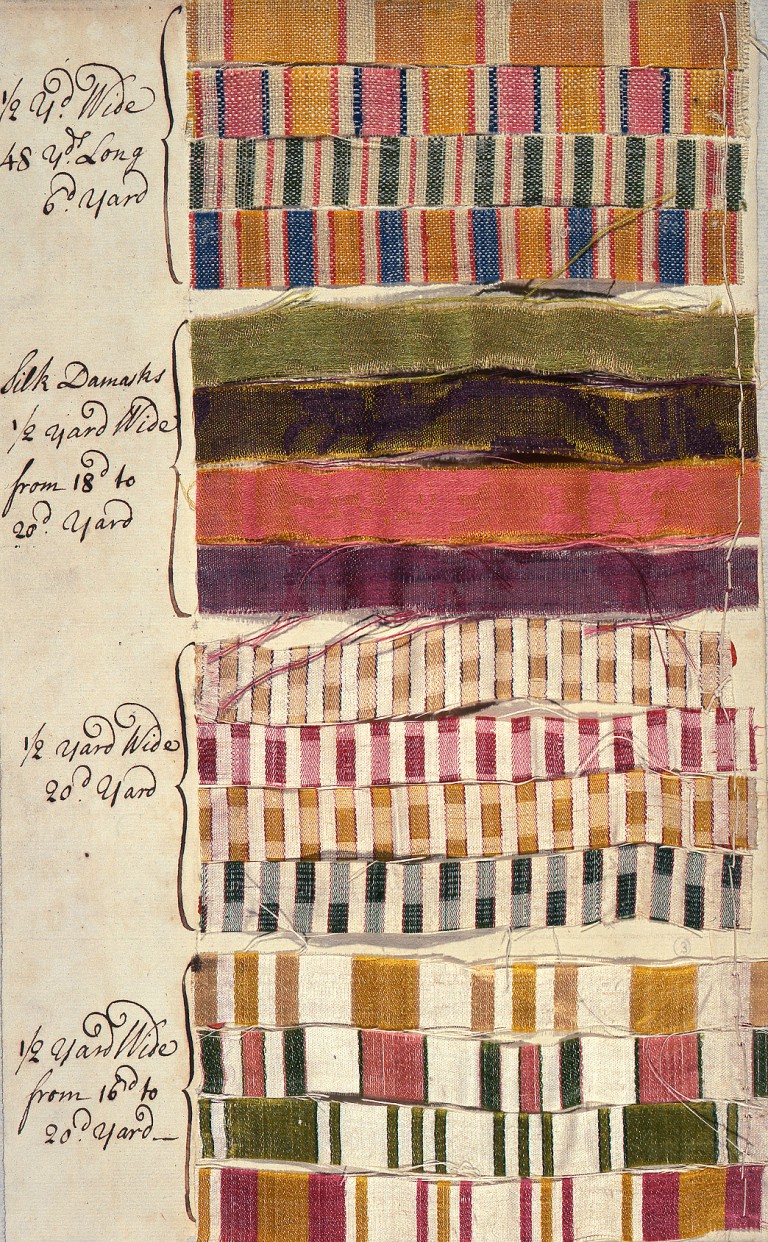 1/2 Yd Wide
48 Yds Long
6d Yard
Silk Damasks
1/2 Yard Wide
from 18d to
20d Yard
1/2 Yard Wide
20d Yard
3
1/2 Yard Wide
from 16d to
20d Yard